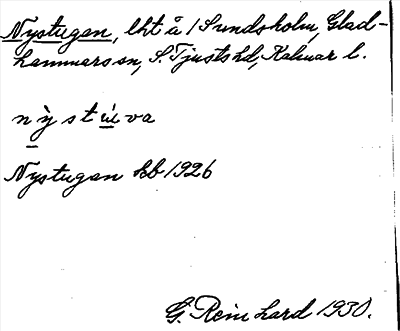 Nystugan, lht å 1 Sundsholm, Glad-
hammars sn, S. Tjusts hd, Kalmar l.
nỳstú̀va
Nystugan kb 1926
G. Reinhard 1930.